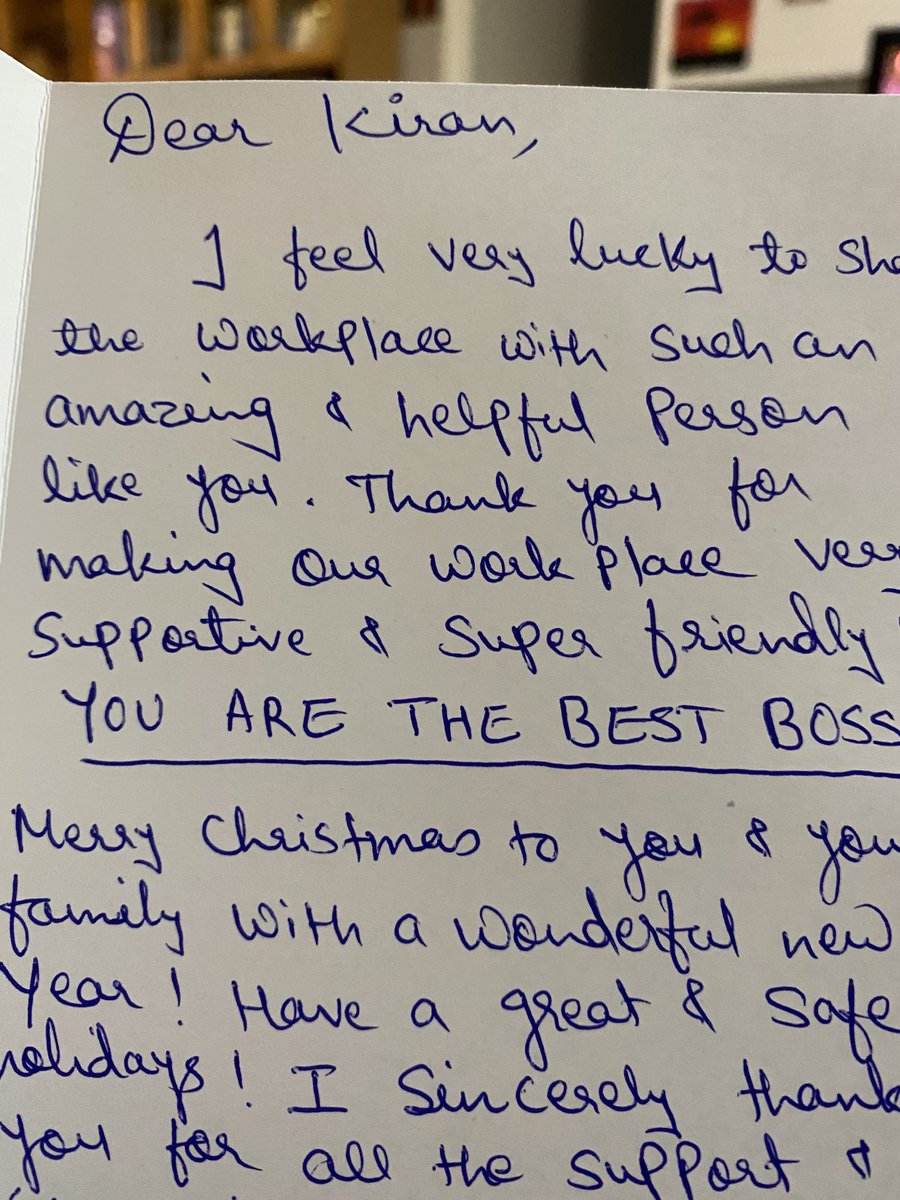 Dear Kiran,
I feel very lucky to sha
the workplace with such an
amazing & helpful Person
like you. Thank you for
making our work place very
Supportive & Super friendly
YOU ARE THE BEST BOSS
Merry Christmas to you & you
family with a wonderful new
Year! Have a great & Safe
holidays! I Sincerely thank
you for all the support &